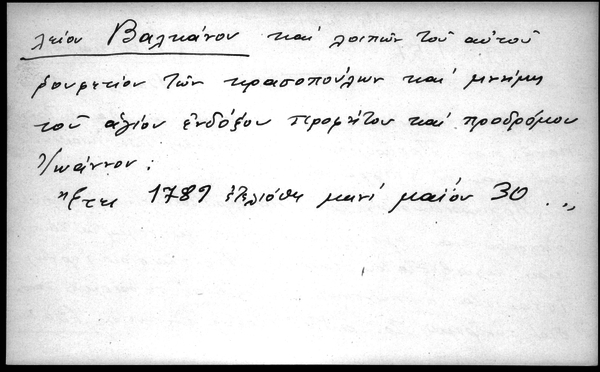 λείον Βαλκάνον καί λοιπών τού αύτού
ρουφετίον τών κρασοπούλων καί μνήμη
τού άγίου ένδόξου προφήτου καί προδρόμου
Ἰωάννου :
Ἔτει 1789 έτελιόθη μινί μαΐου 30 . „